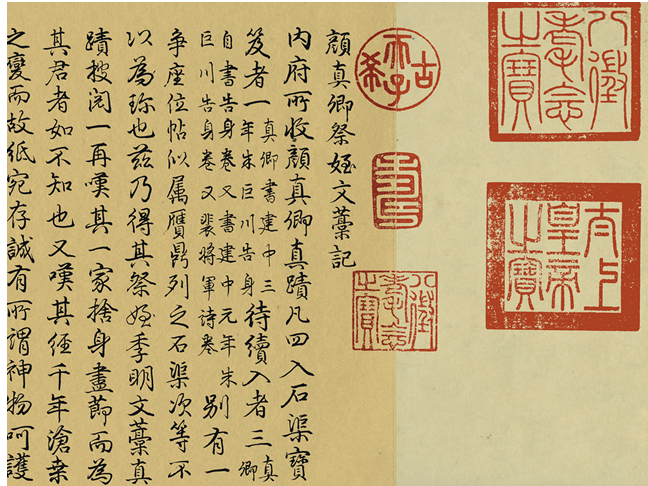 八徵耄念之寶
太上皇帝之寶
古希天子
壽
八徵耄念之寶
顏真卿祭姪文藁記
內府所收顏真卿真蹟凡四入石渠寶
笈者一真卿書建中三年朱巨川告身待續入者三真卿
自書告身卷又書建中元年朱巨川告身卷又裴將軍诗卷別有一
爭座位帖似属贗鼎列之石渠次等不
以為珎也茲乃得其祭姪季明文藁真
蹟披閱一再嘆其一家捨身盡節而為
其君者如不知也又嘆其経千年滄桒
之變而故紙宛存誠有所謂神物呵護